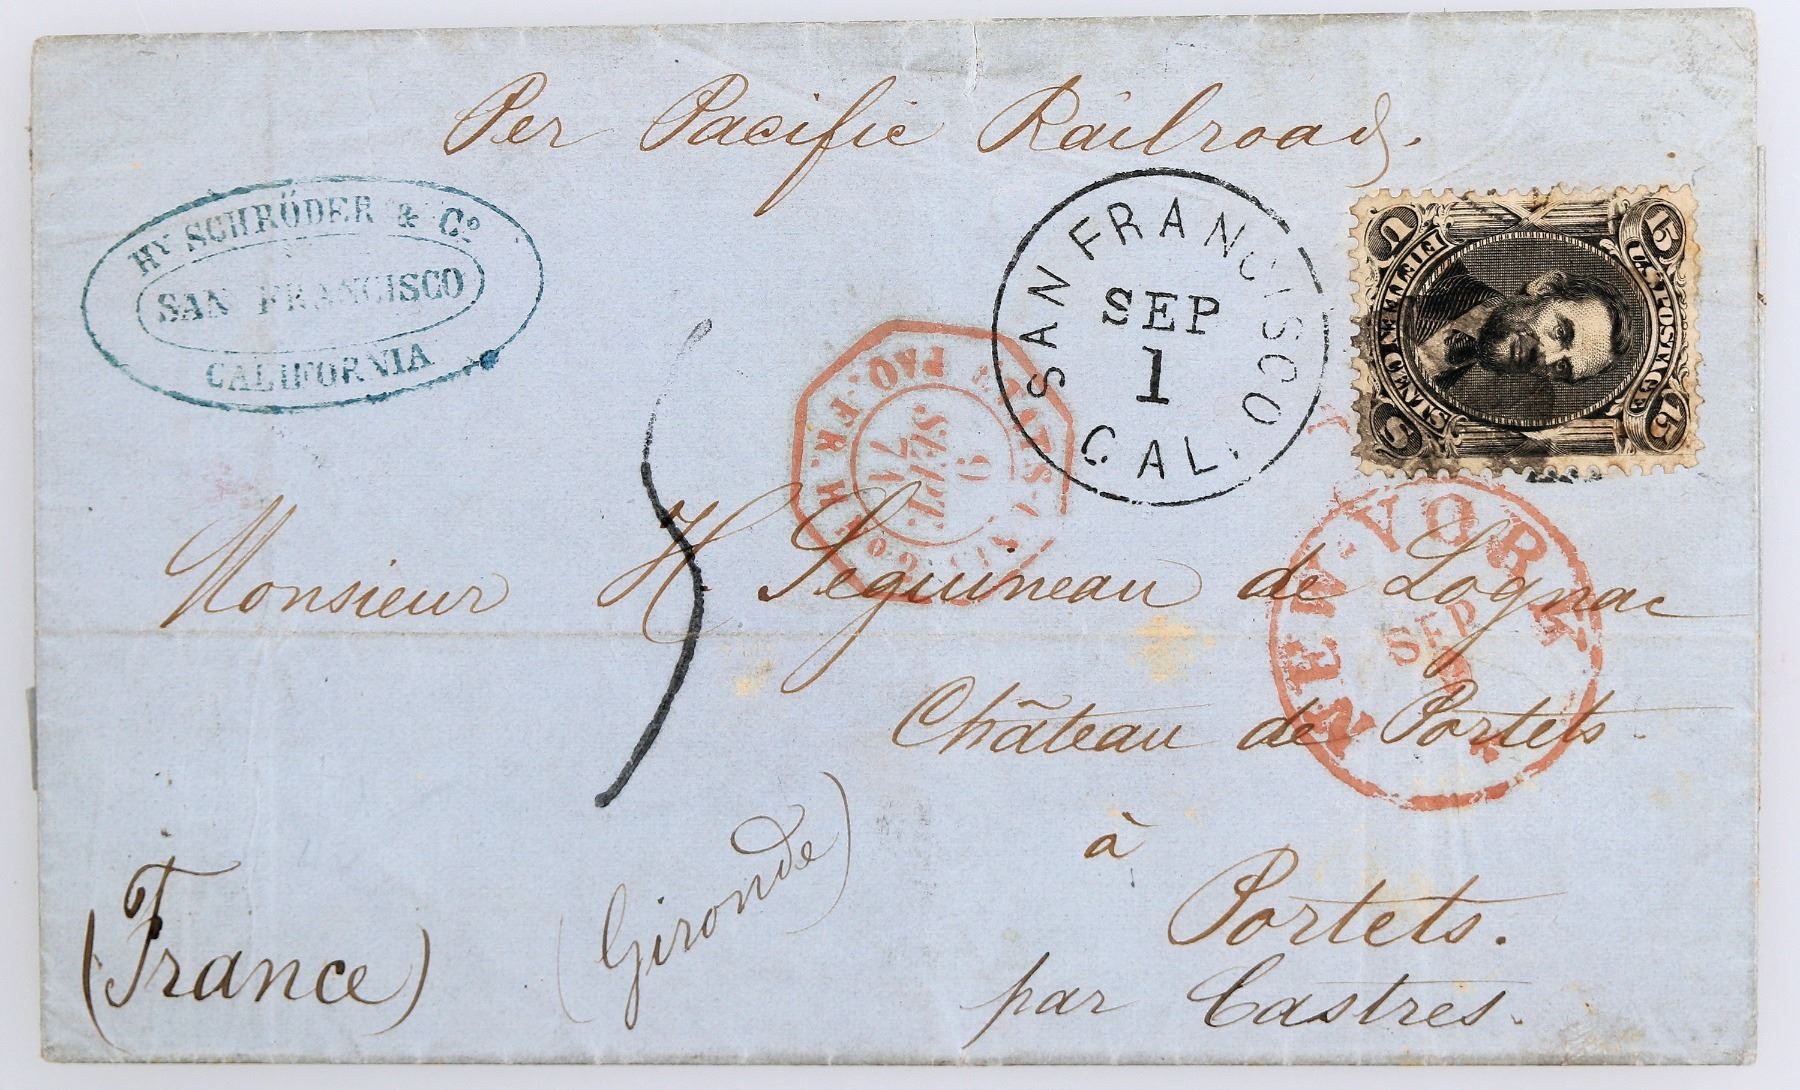 Per Pacific Railroad.
HY SCHRÖDER & Co
SAN FRANCISCO
CALIFORNIA
SAN FRANCISCO
SEP
1
CAL.
U S
15 U.S. POSTAGE 15
FIFTEEN CENTS
PAQ. FR. H
SEPT.
71
NEW YORK
SEP
Monsieur H Seguineau de Lognac
Château de Portets
à
Portets.
par Castres.
(Gironde)
(France)